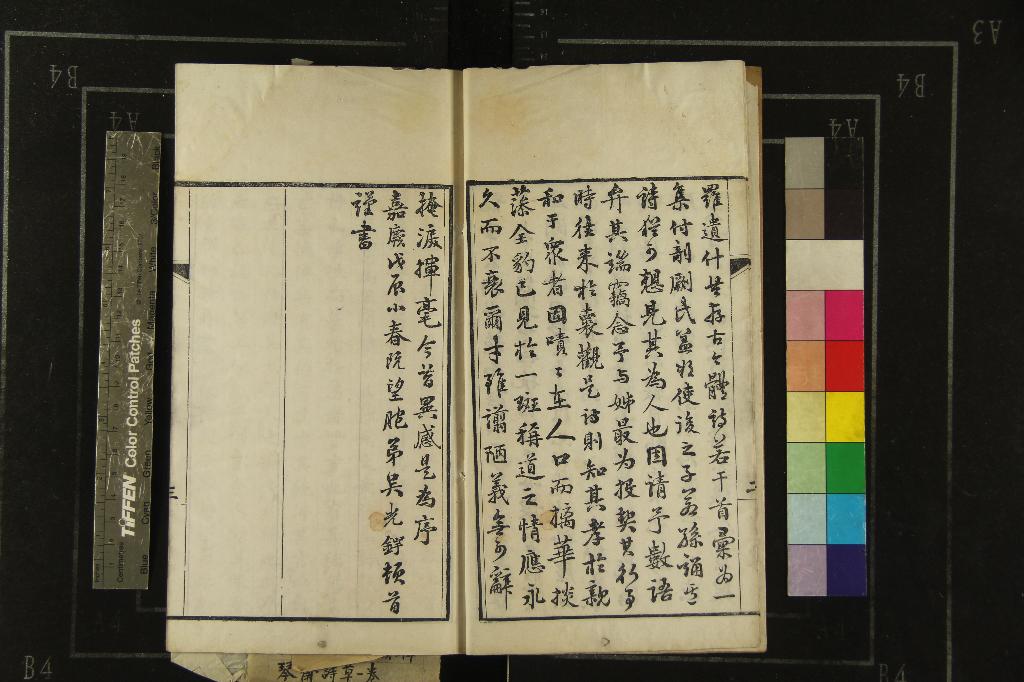 羅遺什共存古今體詩若干首彙為一
集付剞劂氏蓋將使後之子若孫誦其
詩猶可想見其為人也因請予數語
弁其端竊念予与姊最为投契其行事
時往来於裏觀是詩則知其孝於親
和于眾者固嘖〻在人口而摛華掞
藻全豹已見於一斑稱道之情應永
久而不衰爾才雖譾陋義無可辭
掩淚揮毫今昔異感是為序
嘉慶戊辰小春既望胞弟吳光鍔頓首
謹書
二
三
詩草一卷
TIFFEN Color Control Patches
Centimetres
Blue
Cyan
Green
Yellow
Red
Magenta
White
3/Color
Black
A3
B4
B4
A4
A4
B4
B4